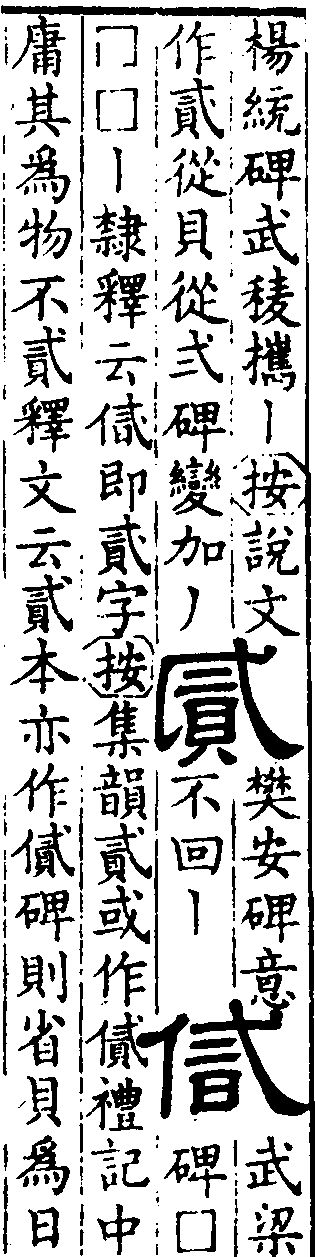 楊統碑武稜攜丨按說文
作貳從貝從弍碑變加丿
貳
樊安碑意
不回丨
武梁
碑□
□□丨隸釋云即貳字按集韻貳或作㒃禮記中
庸其爲物不貳釋文云貳本亦作㒃碑則省貝爲日